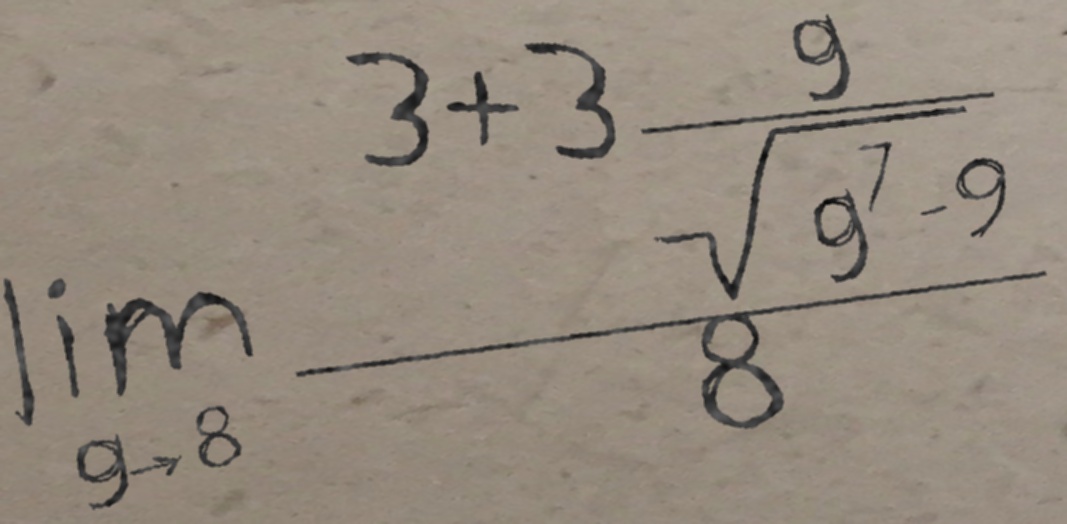 \lim_{g \to 8} \frac{3+3\frac{g}{\sqrt{g^7-9}}}{8}